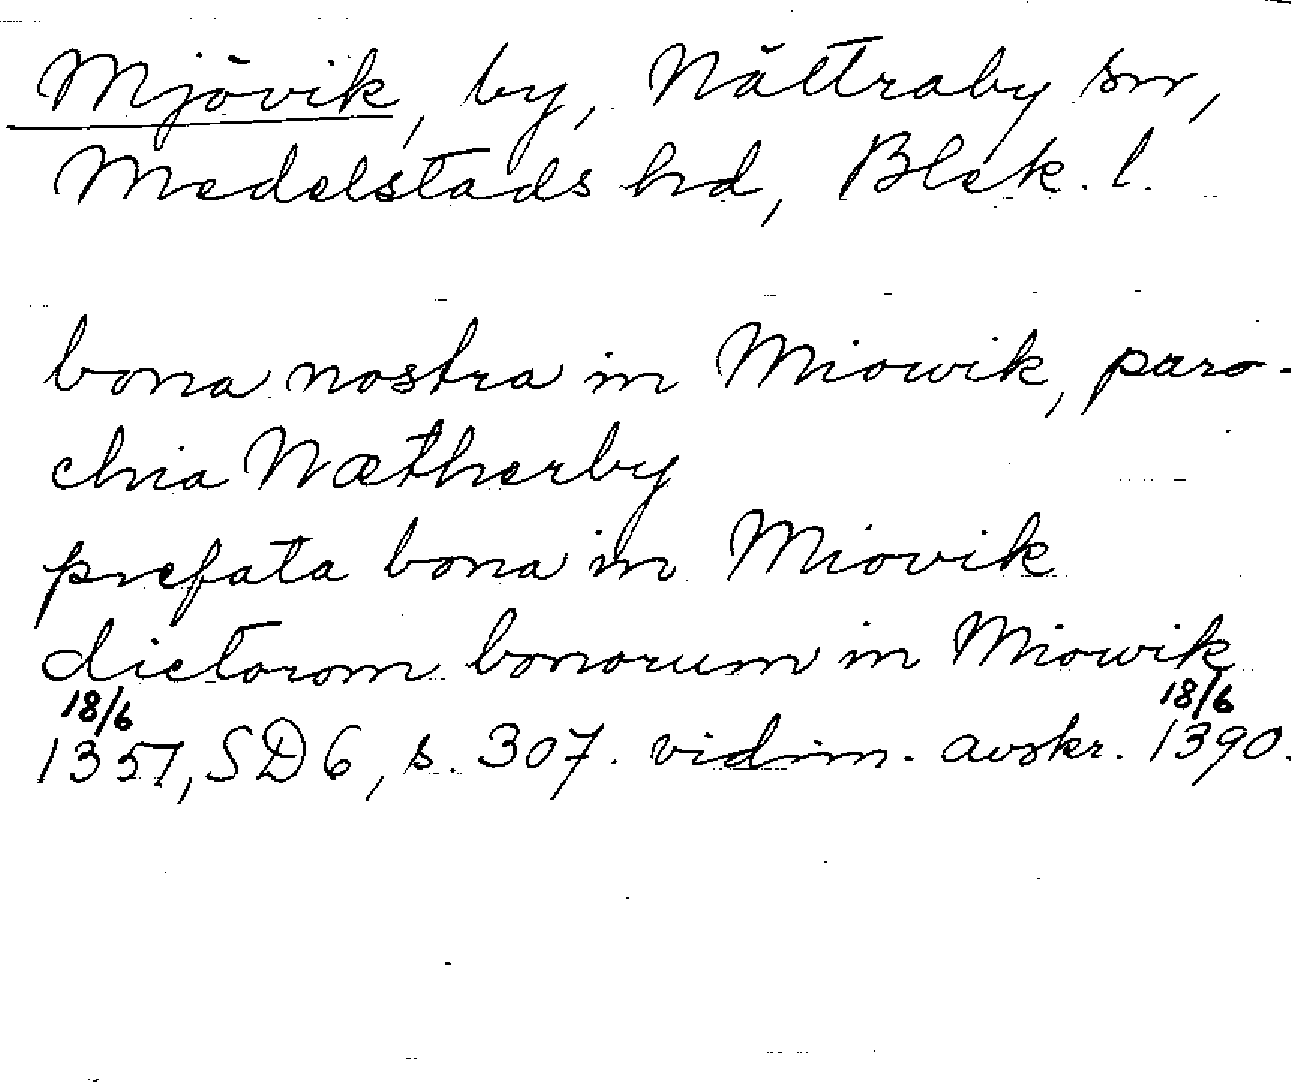 Mjövik, by, Nättraby sn,
Medelstads hd, Blek. l.
bona nostra in Miowik, paro-
chia Nætherby
prefata bona in Miovik
dictorom bonorum in Miowik
18/6 18/6
1351, SD 6, s. 307. vidim. avskr. 1390.